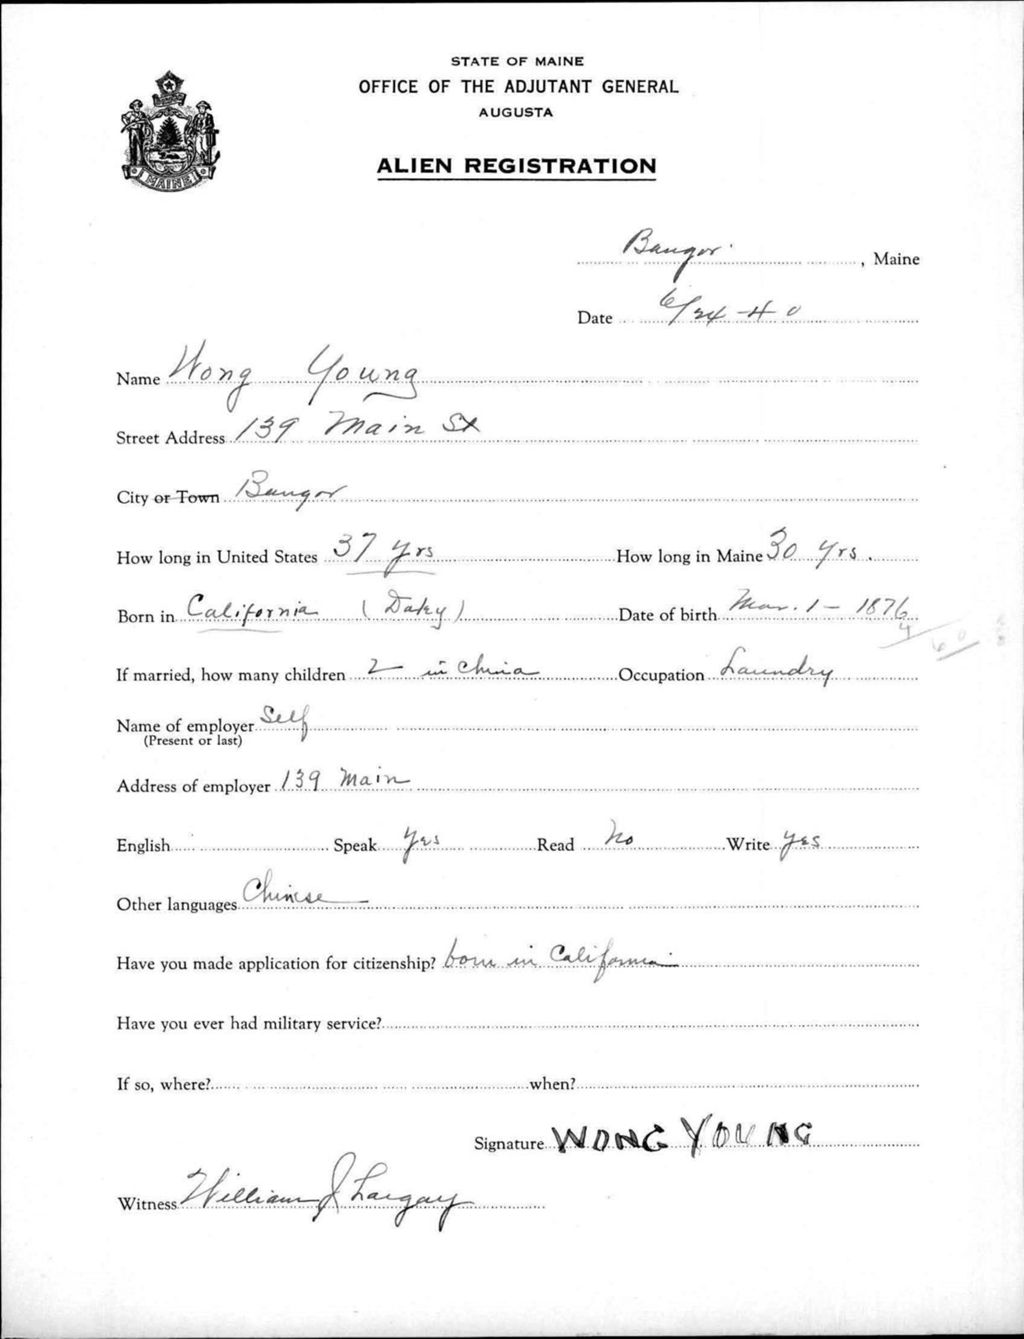 STATE OF MAINE
OFFICE OF THE ADJUTANT GENERAL
AUGUSTA
ALIEN REGISTRATION
MAINE
Bangor, Maine
Date 6/24-40
Name Wong Young
Street Address 139 Main St
City or Town Bangor
How long in United States 37 yrs How long in Maine 30 yrs.
Born in California ( ) Date of birth Mar. 1 - 1876
If married, how many children 2 in China Occupation Laundry
Name of employer Self
(Present or last)
Address of employer 139 Main
English Speak Yes Read No Write Yes
Other languages Chinese
Have you made application for citizenship? born in California
Have you ever had military service?
If so, where? when?
Signature WONG YOUNG
Witness William J Largay